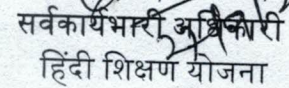 सर्वकार्यभारी अधिकारी
हिंदी शिक्षण योजना